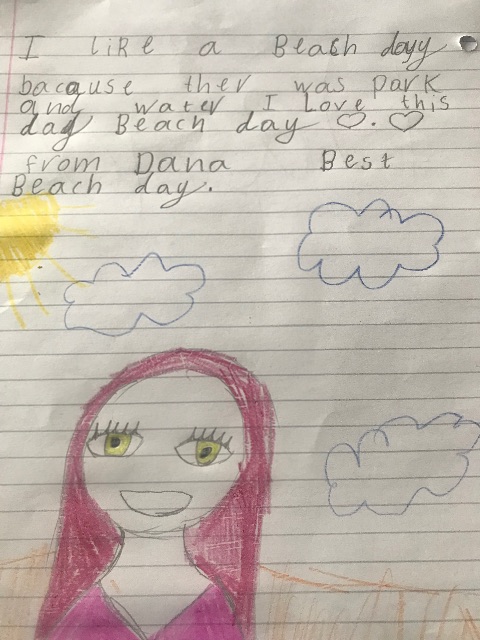 I like a Beach dayy
bacause ther was park
and water I Love this
day Beach day ♡. ♡
from Dana Best
Beach day.